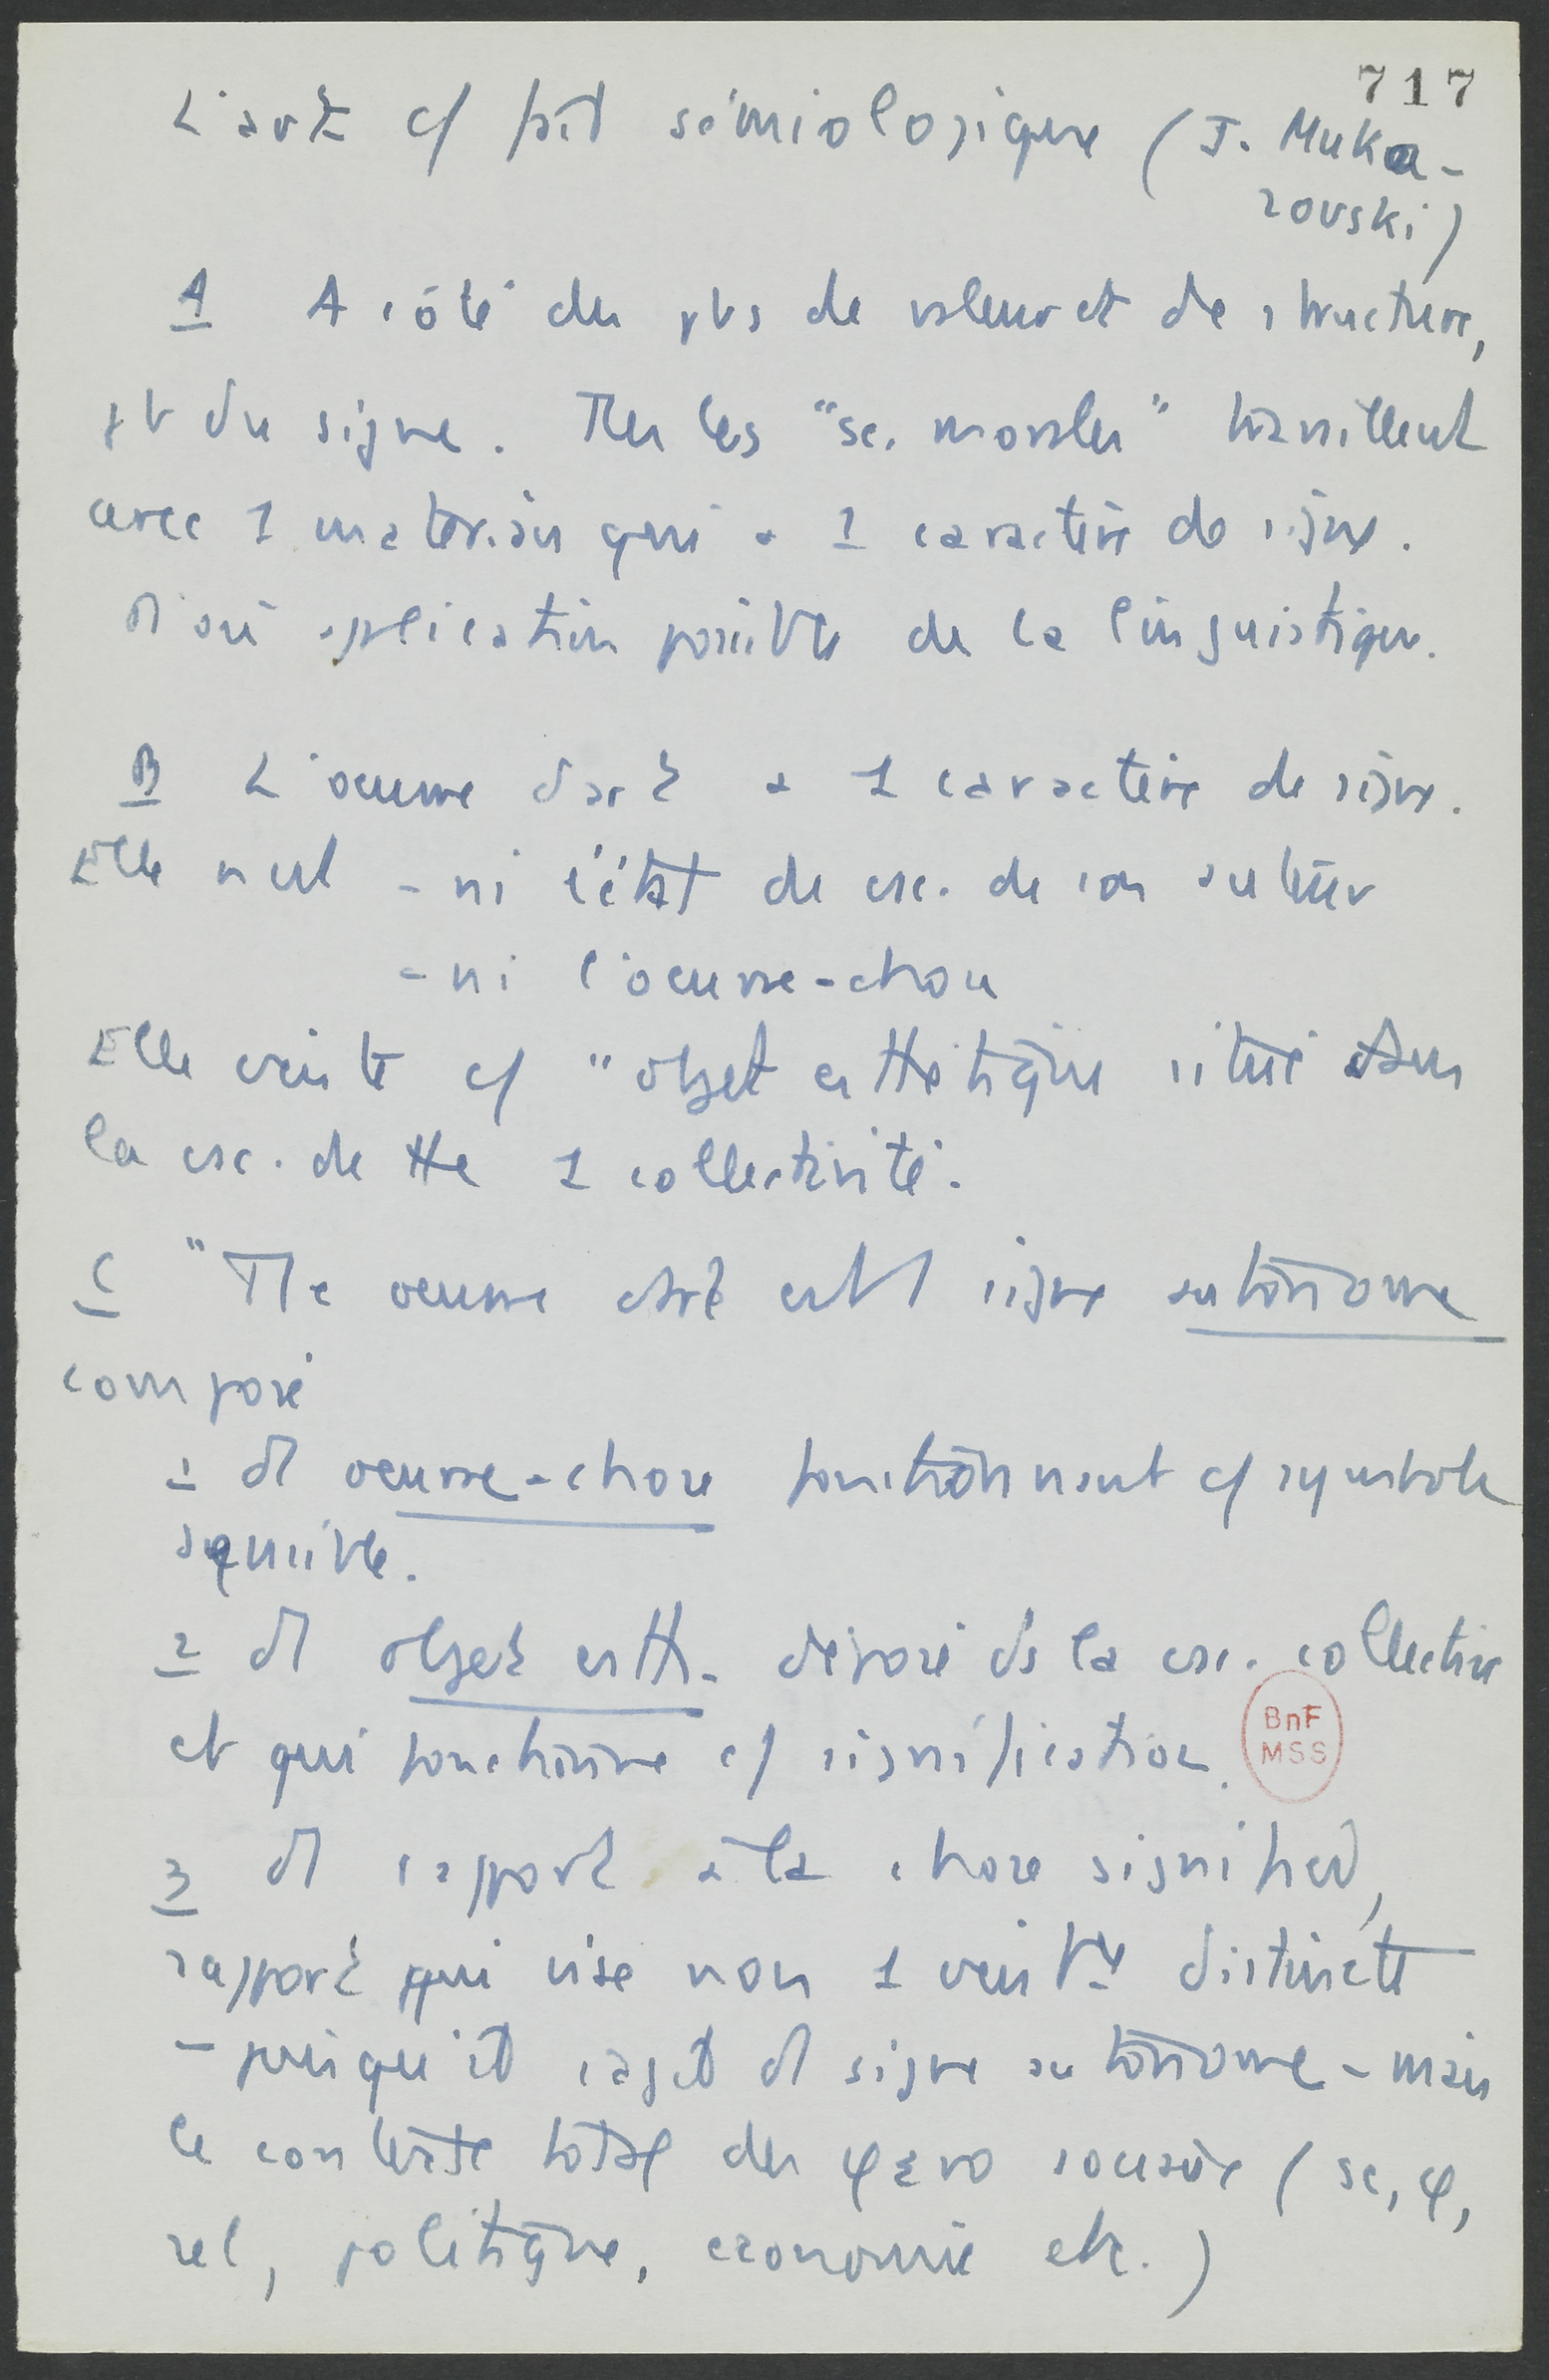 717
L'art c/ fait sémiologique (J. Muka-
rovski)
A A côté des pbs de valeur et de structure,
pb du signe. Ttes les "sc. morales" travaillent
avec 1 matériau qui a 1 caractère de signe.
D'où application possible de la linguistique.
B L'oeuvre d'art a 1 caractère de signe.
Elle n'est - ni l'état de csc. de son auteur
- ni l'oeuvre-chose
Elle existe c/ "objet esthétique situé dans
la csc. de tte 1 collectivité.
C "Tte oeuvre d'art est 1 signe autonome
composé
1 d'1 oeuvre-chose fonctionnant c/ symbole
sensible.
2 d'1 objet esth. déposé ds la csc. collective
et qui fonctionne c/ signification.
3 d'1 rapport à la chose signifiée,
rapport qui vise non 1 distincte
- puisqu'il s'agit d'1 signe autonome - mais
le contexte total des φεno sociaux (sc, φ,
rel, politique, economie etc.)
BnF
MSS